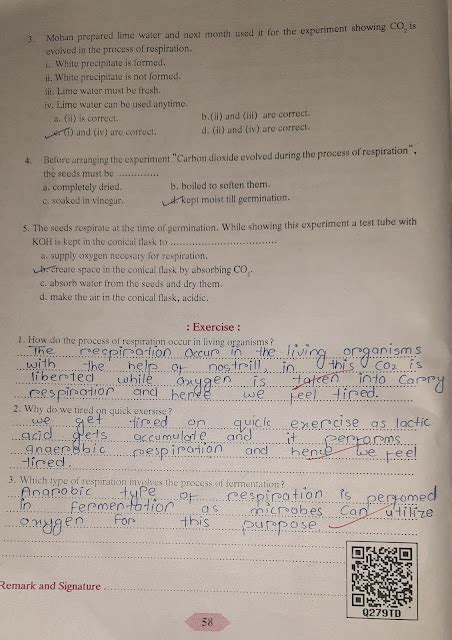 3. Mohan prepared lime water and next month used it for the experiment showing CO2 is
evolved in the process of respiration.
i. White precipitate is formed.
ii. White precipitate is not formed.
iii. Lime water must be fresh.
iv. Lime water can be used anytime.
a. (ii) is correct. b.(ii) and (iii) are correct.
c. (i) and (iv) are correct. d. (ii) and (iv) are correct.
4. Before arranging the experiment "Carbon dioxide evolved during the process of respiration",
the seeds must be .............
a. completely dried. b. boiled to soften them.
c. soaked in vinegar. d. kept moist till germination.
5. The seeds respirate at the time of germination. While showing this experiment a test tube with
KOH is kept in the conical flask to ..................................
a. supply oxygen necesary for respiration.
b. create space in the conical flask by absorbing CO2.
c. absorb water from the seeds and dry them.
d. make the air in the conical flask, acidic.
: Exercise :
1. How do the process of respiration occur in living organisms?
The respiration occur in the living organisms
with the help of nostrill, in this CO2 is
liberted while oxygen is taken into carry
respiration and hence we feel tired.
2. Why do we tired on quick exersise?
we get tired on quick exercise as lactic
acid gets accumulate and it performs
anaerobic respiration and hence we feel
tired.
3. Which type of respiration involves the process of fermentation?
Anarobic type of respiration is performed
in fermentation as microbes can utilize
oxygen for this purpose.
Remark and Signature
Q279TD
58